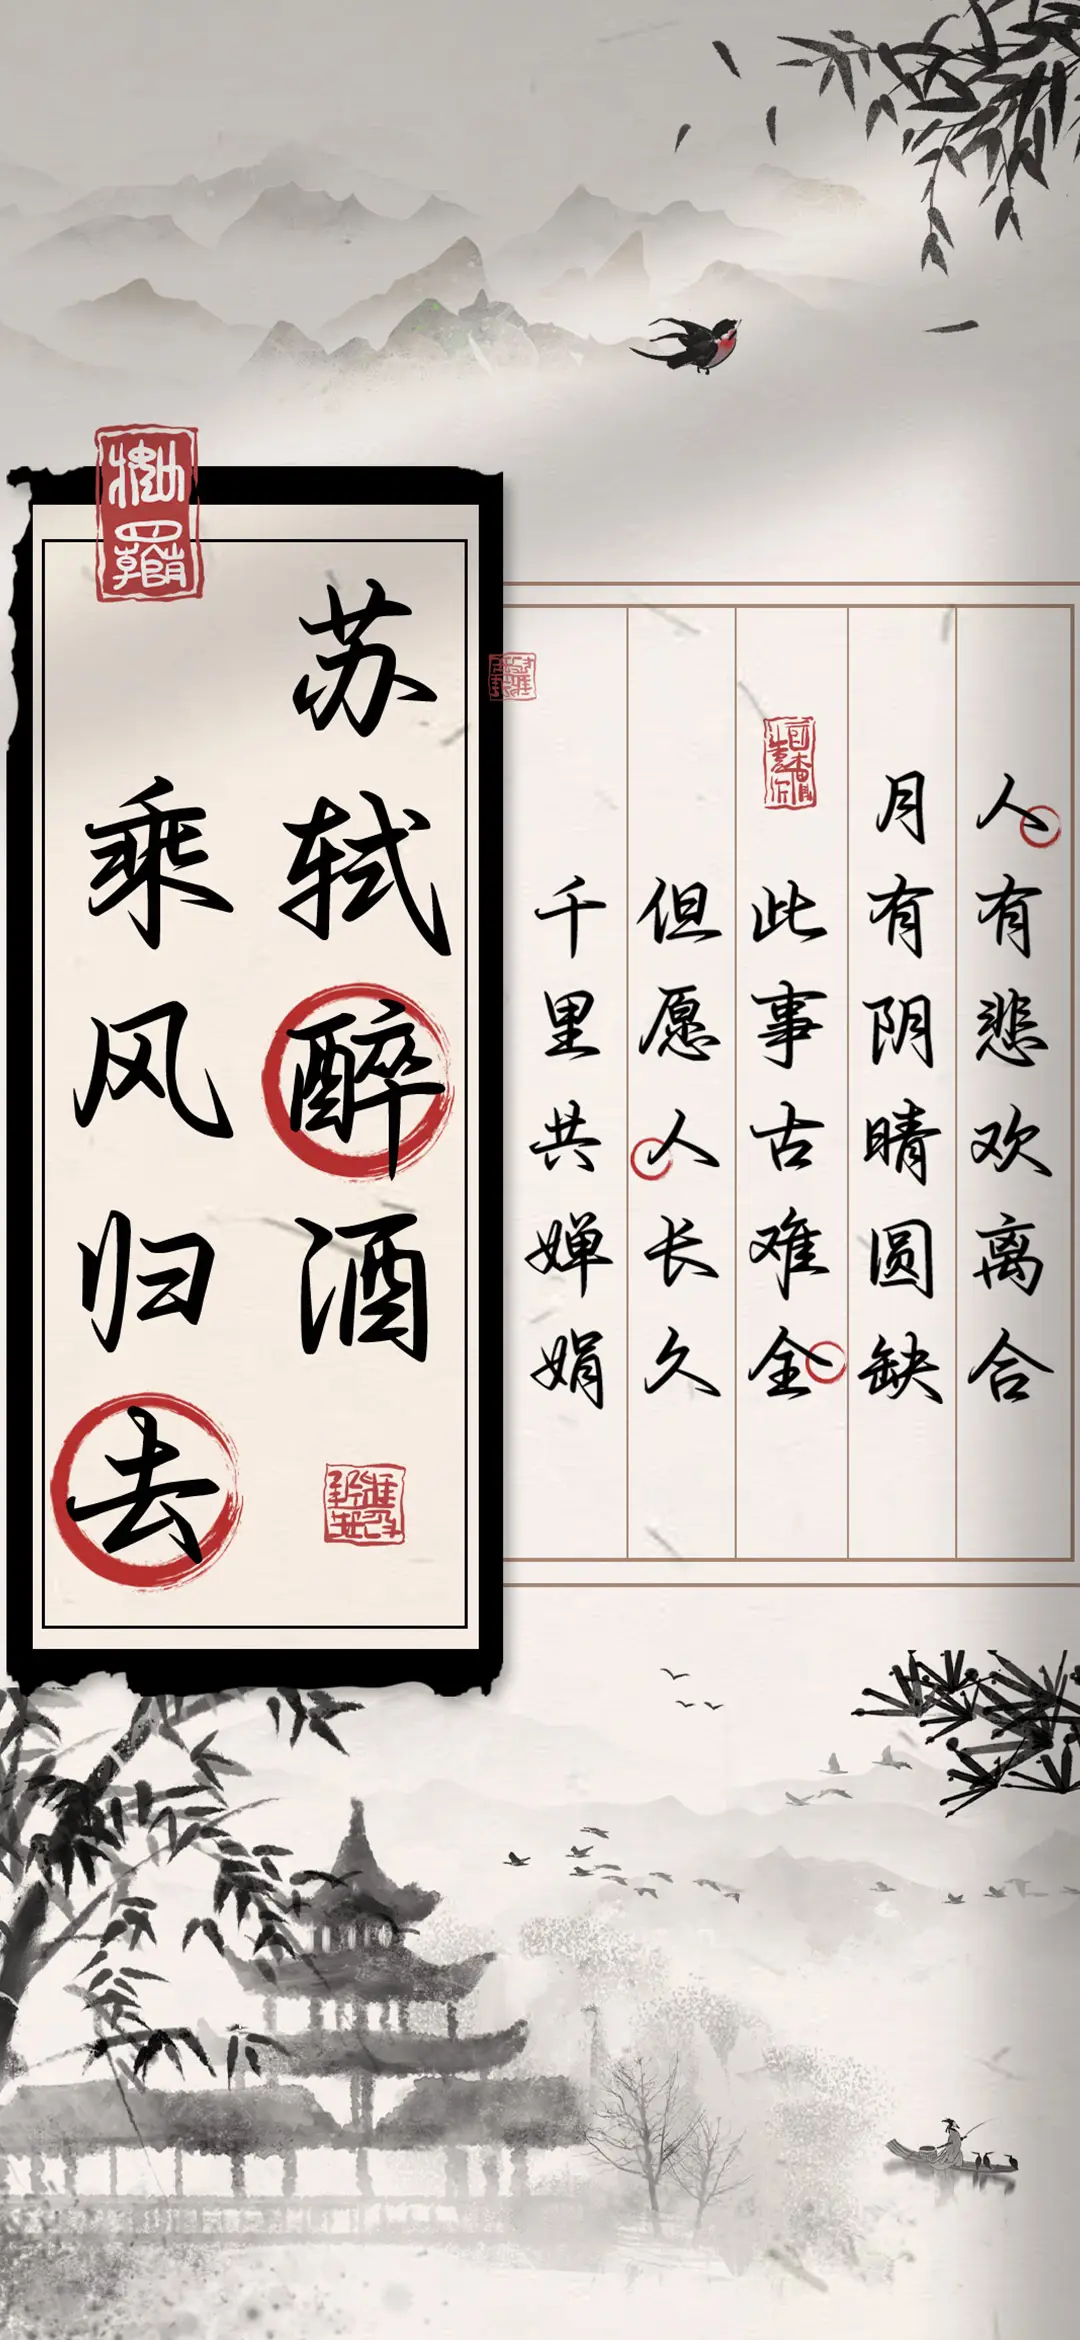 人有悲欢离合
月有阴晴圆缺
此事古难全
但愿人长久
千里共婵娟
苏轼醉酒
乘风归去